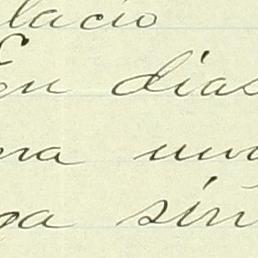 lacio
En dias
na un
ga sin